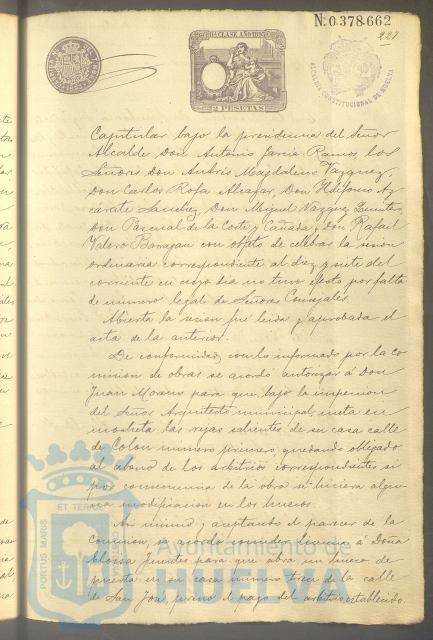 Nº 0.378.662
227
11ª CLASE AÑO 1895
2 PESETAS
ALCALDIA CONSTITUCIONAL DE HUELVA
Capitular bajo la presidencia del Señor
Alcalde Don Antonio Garcia Ramos, los
Señores Don Andrés Magdaleno Vazquez,
Don Carlos Rofa Alcazar, Don Ildefonso Az
cárate Sanchez, Don Miguel Vazquez
Don Pascual de la Corte y Cañada y Don Rafael
Valero Barragan con objeto de celebrar la sesion
ordinaria correspondiente al diez y siete del
corriente en cuyo dia no tuvo efecto por falta
de número legal de Señores Concejales.
Abierta la sesion fué leida y aprobada el
acta de la anterior.
De conformidad con lo informado por la co
mision de obras se acordó autorizar á Don
Juan Moreno para que, bajo la inspeccion
del Señor Arquitecto municipal, meta en
mocheta las rejas salientes de su casa calle
de Colon numero primero, quedando obligado
al abono de los arbitrios correspondientes si
por consecuencia de la obra se hiciera algu
na modificacion en los huecos.
Asi mismo y aceptando el parecer de la
Comision, se acordó conceder licencia á Doña
para que abra un hueco de
puerta en su casa numero trece de la calle
de San José, previo el pago del arbitrio establecido.
PORTUS MARIS ET TERRAE
Ayuntamiento de
HUELVA